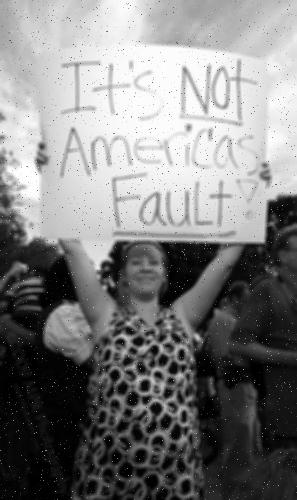 It's NOt
Americas
Fault!